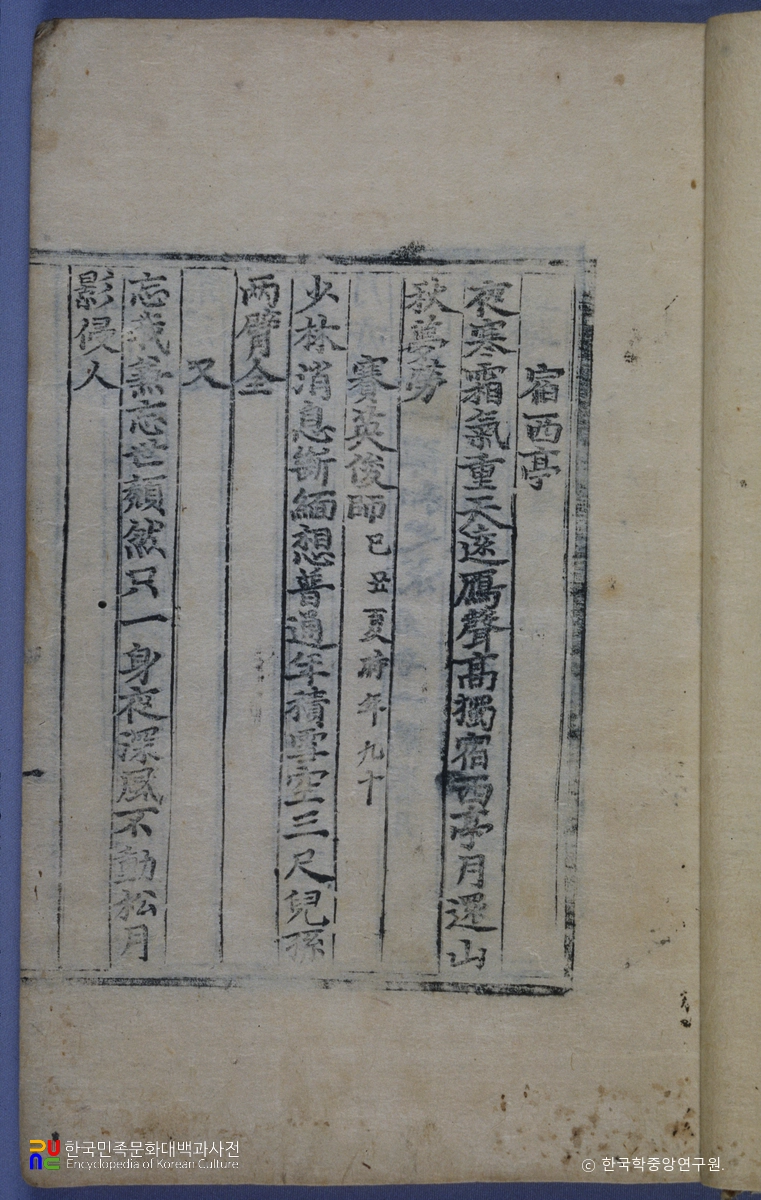 宿西亭
夜寒霜氣重天遠鴈聲高獨宿西亭月還山
秋夢勞
賽英俊師 己丑夏時年九十
少林消息斷緬想普通年積雪空三尺兒孫
兩臂全
又
忘我兼忘世頹然只一身夜深風不動松月
影侵人
한국민족문화대백과사전
Encyclopedia of Korean Culture
© 한국학중앙연구원.